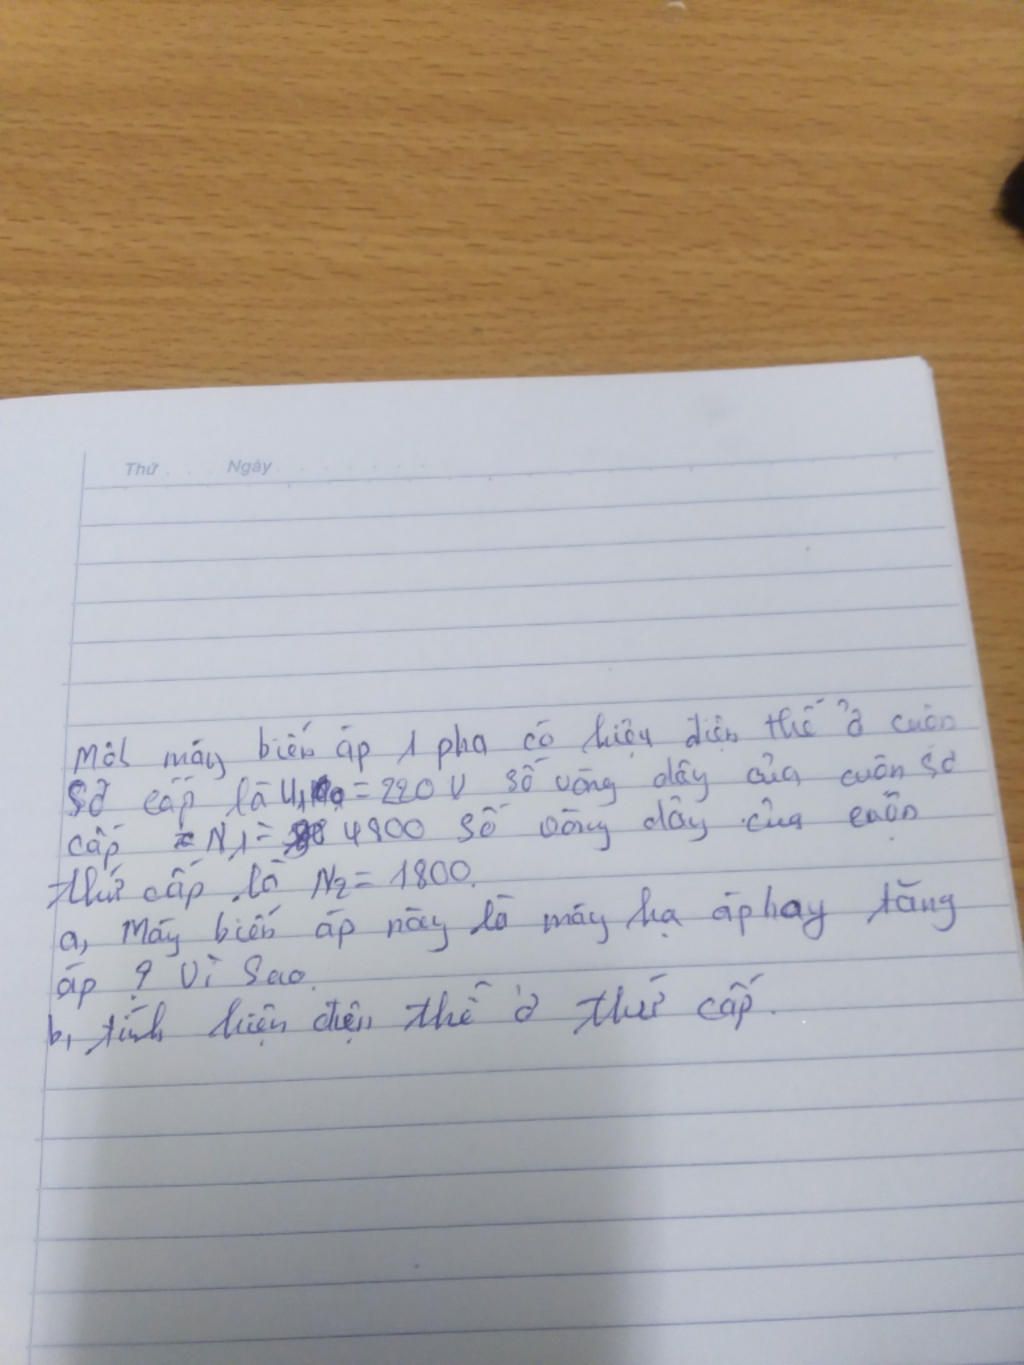 Thứ Ngày
Một máy biến áp 1 pha có hiệu điện thế ở cuộn
Sơ cấp là U1 = 220 V số vòng dây của cuộn sơ
cấp N1 = 4800 số vòng dây của cuộn
thứ cấp là N2 = 1800.
a, Máy biến áp này là máy hạ áp hay tăng
áp ? Vì Sao.
b, tính hiện điện thế ở thứ cấp.